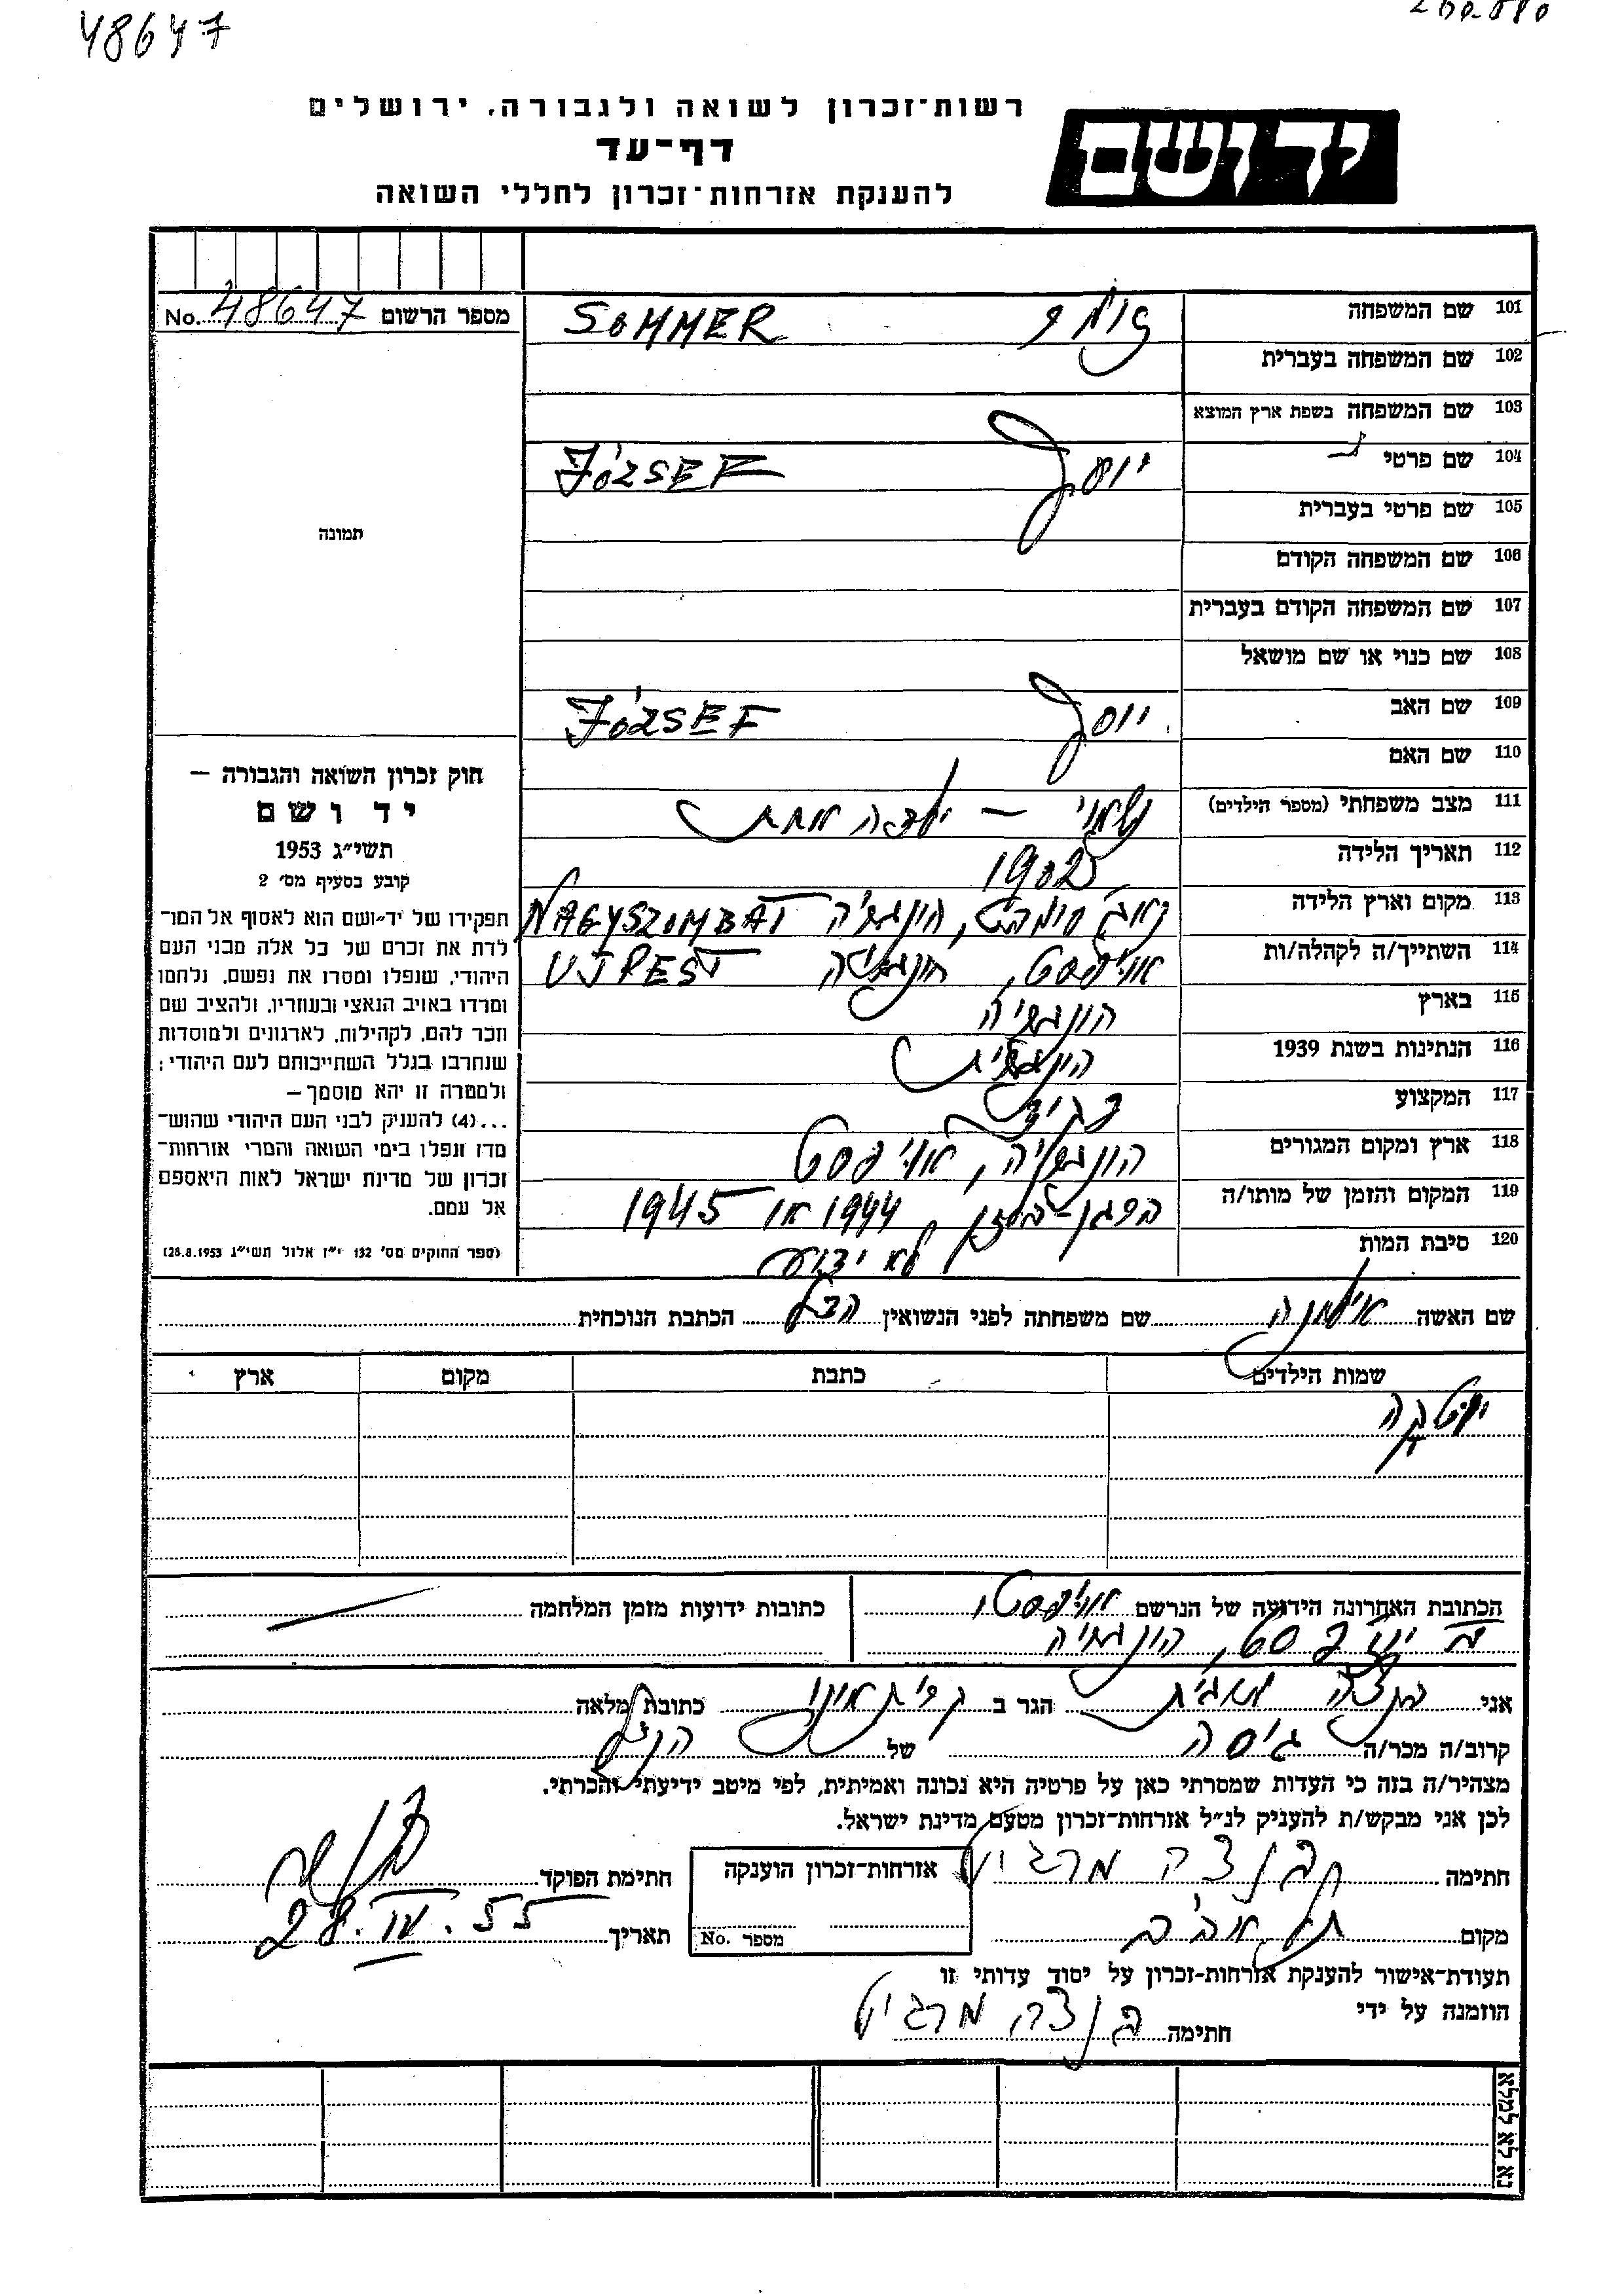 48647
רשות־זכרון לשואה ולגבורה, ירושלים
דף־עד
להענקת אזרחות־זכרון לחללי השואה
יד ושם
מספר הרשום No. 48647
תמונה
101 שם המשפחה זומר SOMMER
102 שם המשפחה בעברית
103 שם המשפחה בשפת ארץ המוצא
104 שם פרטי יוסף JÓZSEF
105 שם פרטי בעברית
106 שם המשפחה הקודם
107 שם המשפחה הקודם בעברית
108 שם כנוי או שם מושאל
109 שם האב יוסף JÓZSEF
110 שם האם
111 מצב משפחתי (מספר הילדים) נשוי – ילדה אחת
112 תאריך הלידה 1902
113 מקום וארץ הלידה הונגריה NAGYSZOMBAT
114 השתייך/ה לקהלה/ות אויפסט, הונגריה UJPEST
115 בארץ הונגריה
116 הנתינות בשנת 1939 הונגרית
117 המקצוע פקיד
118 ארץ ומקום המגורים הונגריה, אויפסט
119 המקום והזמן של מותו/ה ברגן-בלזן, 1944 או 1945
120 סיבת המות לא ידוע
חוק זכרון השואה והגבורה –
יד ושם
תשי״ג 1953
קובע בסעיף מס׳ 2
תפקידו של יד־ושם הוא לאסוף אל המו־
לדת את זכרם של כל אלה מבני העם
היהודי, שנפלו ומסרו את נפשם, נלחמו
ומרדו באויב הנאצי ובעוזריו, ולהציב שם
וזכר להם, לקהילות, לארגונים ולמוסדות
שנחרבו בגלל השתייכותם לעם היהודי;
ולמטרה זו יהא מוסמך –
...(4) להעניק לבני העם היהודי שהוש־
מדו ונפלו בימי השואה והמרי אזרחות־
זכרון של מדינת ישראל לאות היאספם
אל עמם.
(ספר החוקים מס׳ 132 י״ז אלול תשי״ג 28.8.1953)
שם האשה אילונה שם משפחתה לפני הנשואין הכתבת הנוכחית
שמות הילדים כתבת מקום ארץ
יוטקה
הכתובת האחרונה הידועה של הנרשם אויפסט, כתובות ידועות מזמן המלחמה
הונגריה
אני מרגיט הגר ב קרית אונו כתובת מלאה
קרוב/ה מכר/ה גיסה של הנ״ל
מצהיר/ה בזה כי העדות שמסרתי כאן על פרטיה היא נכונה ואמיתית, לפי מיטב ידיעתי והכרתי.
לכן אני מבקש/ת להעניק לנ״ל אזרחות־זכרון מטעם מדינת ישראל.
חתימה מרגיט אזרחות־זכרון הוענקה חתימת הפוקד
מקום תל אביב מספר No. תאריך 28.IV.55
תעודת־אישור להענקת אזרחות־זכרון על יסוד עדותי זו
הוזמנה על ידי
חתימה מרגיט
נא לא למלא